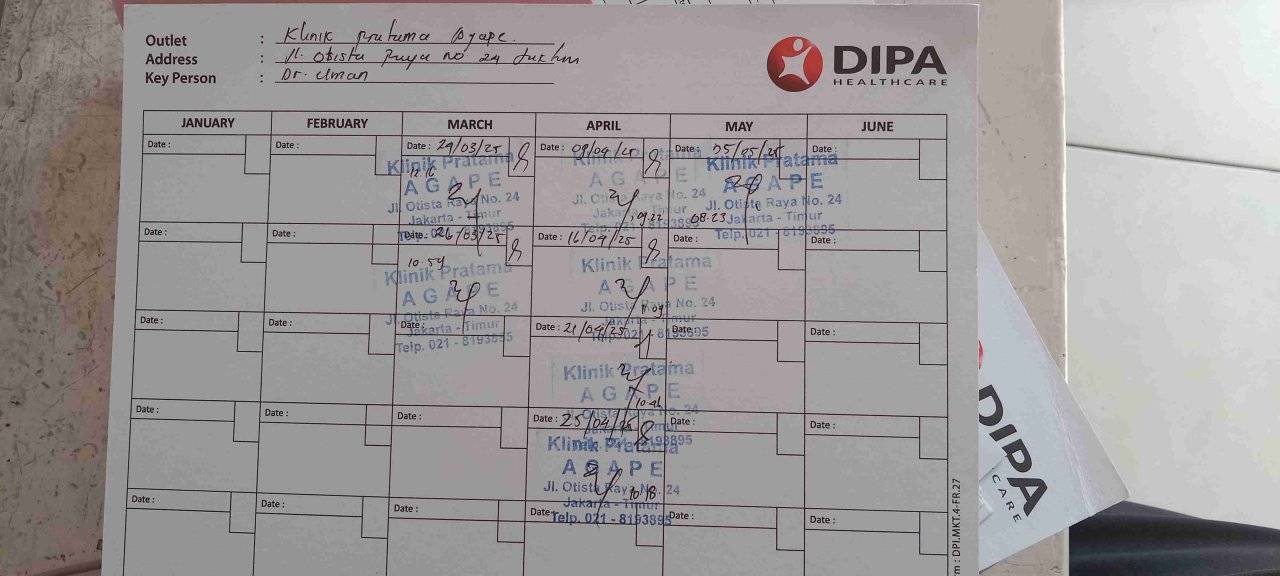 Outlet : Klinik Pratama Agape.
Address : Jl. Otista Raya no 24 Jaktim
Key Person : Dr. Uman
DIPA
HEALTHCARE
JANUARY FEBRUARY MARCH APRIL MAY JUNE
Date : Date : Date : 24/03/25 Date : 09/04/25 Date : 05/05/25 Date :
Klinik Pratama Klinik Pratama Klinik Pratama
12.16
AGAPE AGAPE AGAPE
Jl. Otista Raya No. 24 Jl. Otista Raya No. 24 Jl. Otista Raya No. 24
Jakarta - Timur Jakarta - Timur Jakarta - Timur
09.22 08.23
Telp. 021 - 8193895 Telp. 021 - 8193895 Telp. 021 - 8193895
Date : Date : Date : 26/03/25 Date : 16/04/25 Date : Date :
10.54
Klinik Pratama Klinik Pratama
AGAPE AGAPE
Jl. Otista Raya No. 24 Jl. Otista Raya No. 24
11.09
Jakarta - Timur
Telp. 021 - 8193895 Telp. 021 - 8193895
Date : Date : Date : Date : 21/04/25 Date : Date :
Klinik Pratama
AGAPE
10.46
Otista Raya No. 24
Date : Date : Date : Date : 25/04/25 Date : Date :
8193895
Klinik Pratama
AGAPE
Jl. Otista Raya No. 24
10.18
Jakarta - Timur
Telp. 021 - 8193895
Date : Date : Date : Date : Date : Date :
DIPA
CARE
m : DPI.MKT.4-FR.27